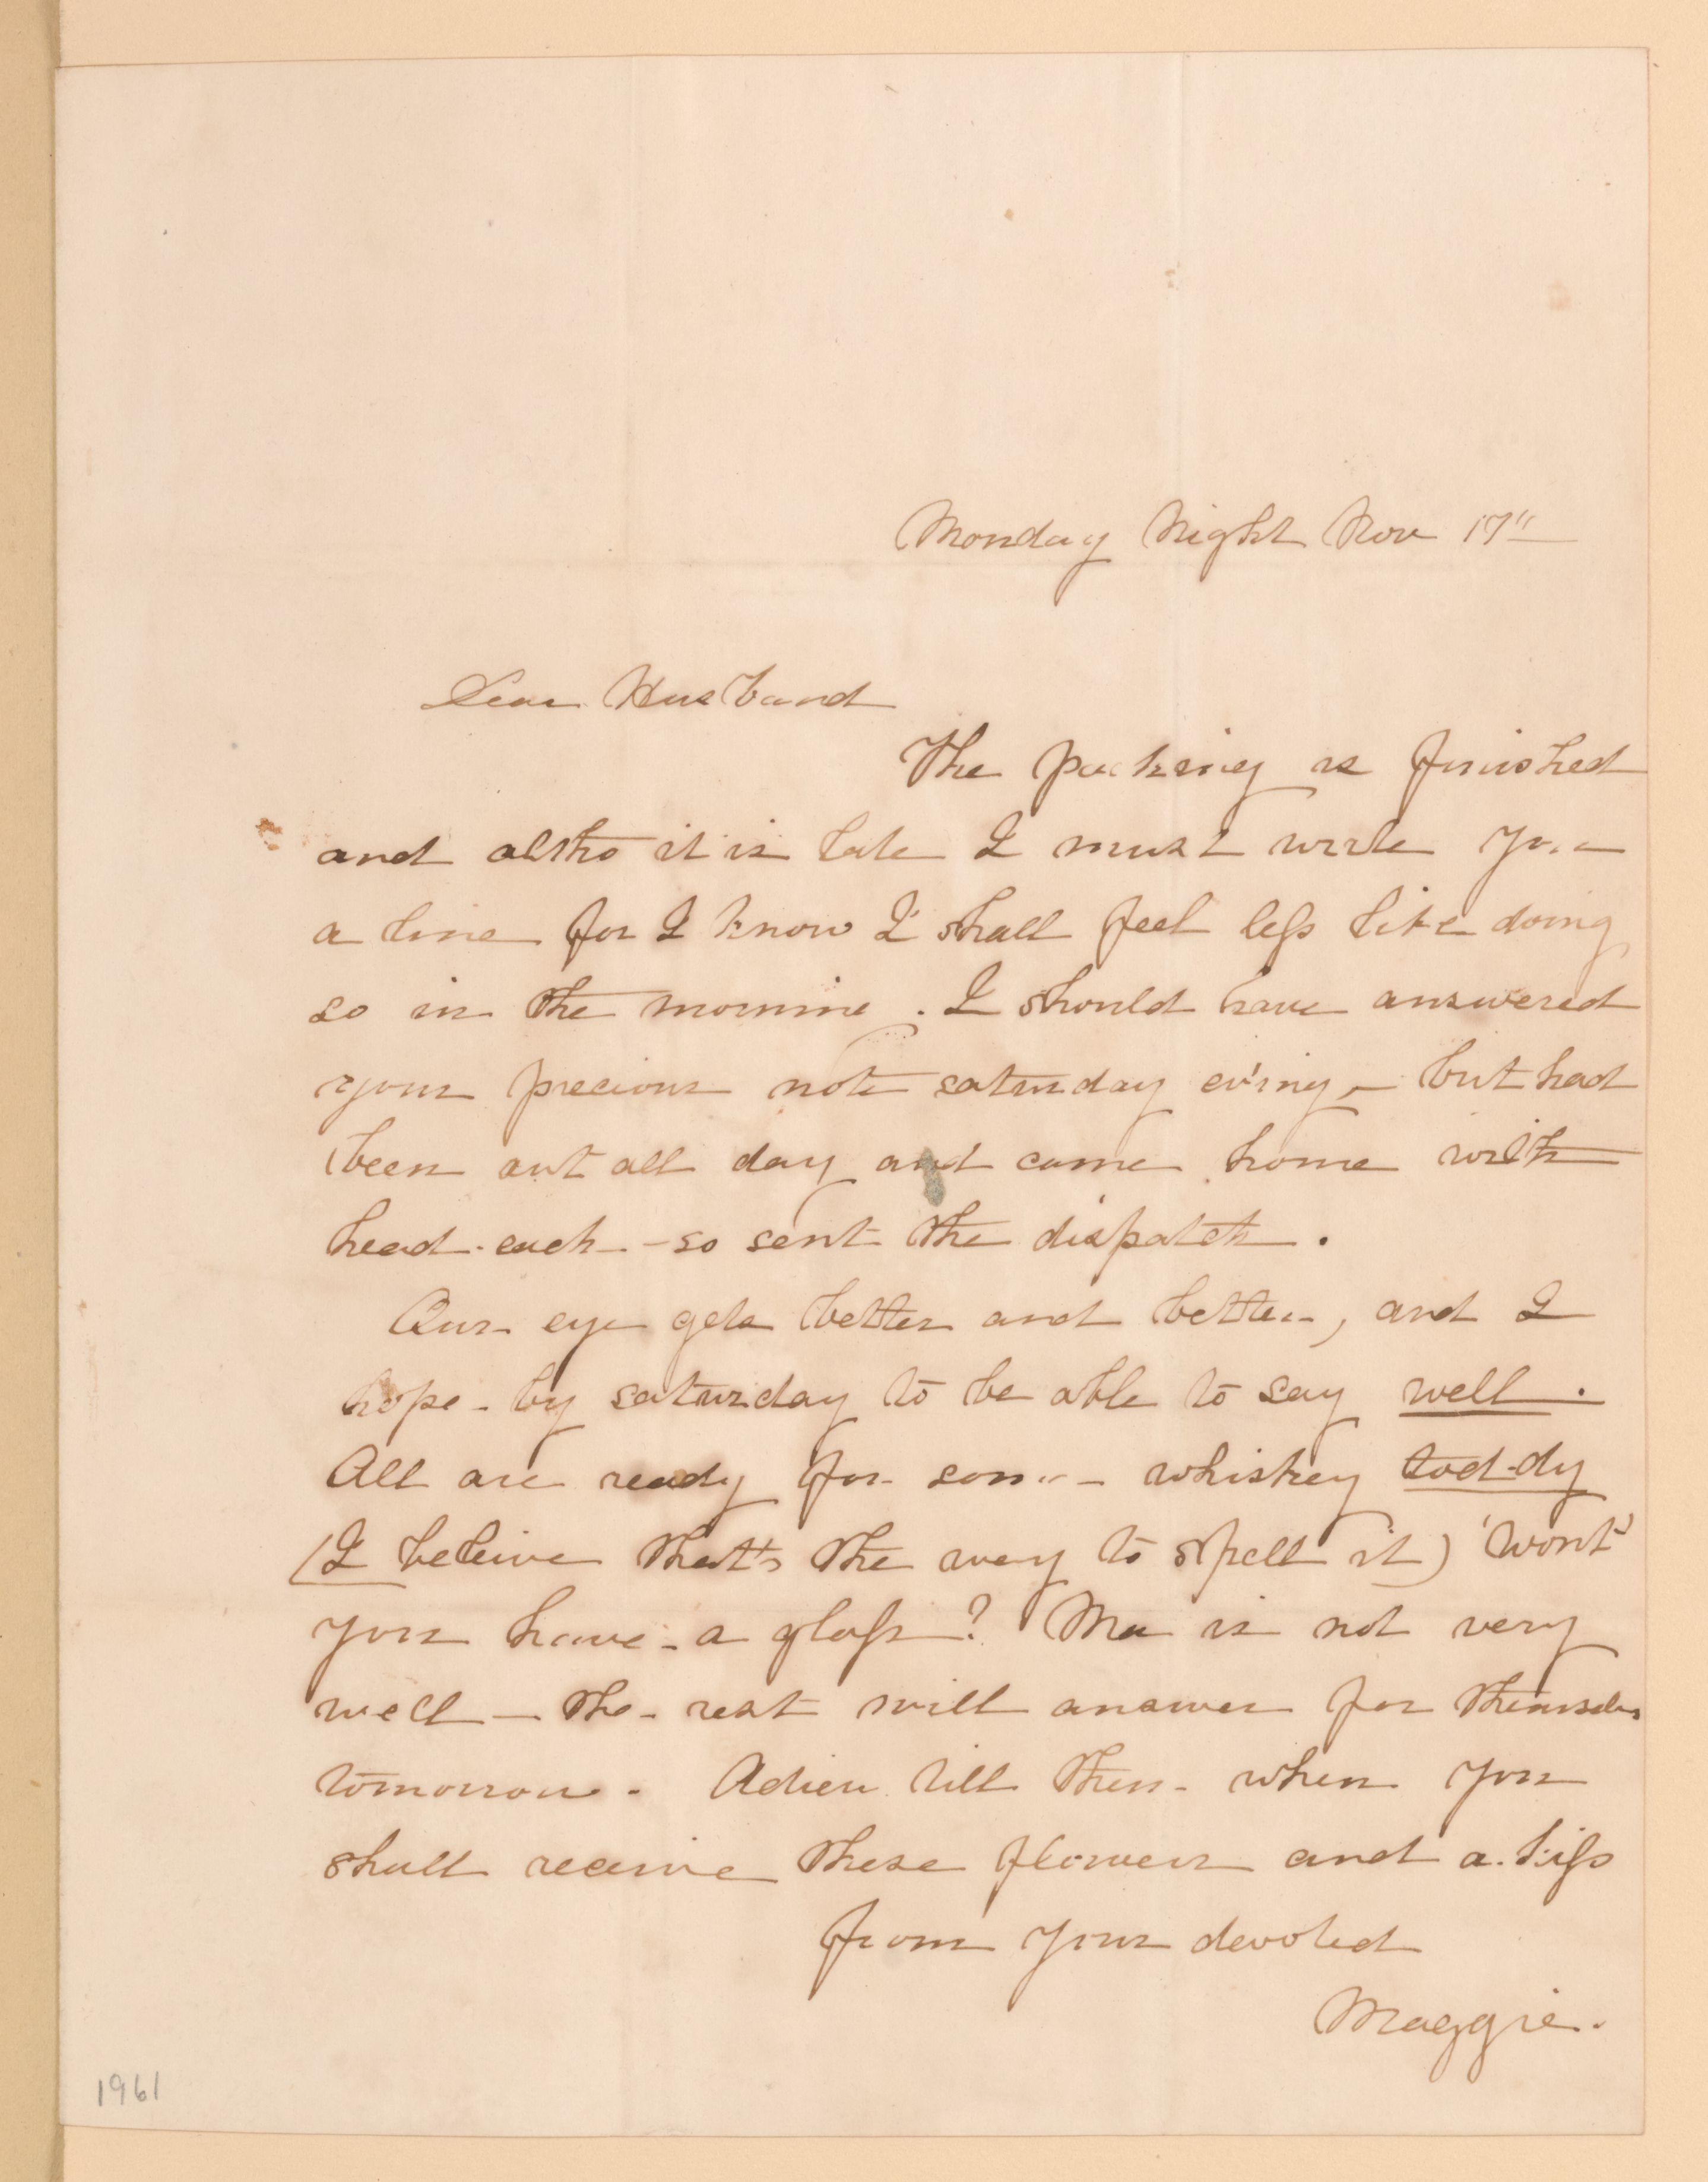 Monday Night Nov 17"
Dear Husband
The packing is finished
and altho it is late I must write you
a line for I know I shall feel less like doing
so in the morning . I should have answered
your precious note saturday ev'ing, – but had
been out all day and came home with
head-each – so sent the dispatch .
Our eye gets better and better, and I
hope - by saturday to be able to say well .
All are ready for some whiskey tod-dy
(I beleive that's the way to spell it) 'wont'
you have a glass ? Ma is not very
well – the rest will answer for themselves
tomorrow . Adieu till then - when you
shall receive these flowers and a kiss
from your devoted
Maggie .
1961